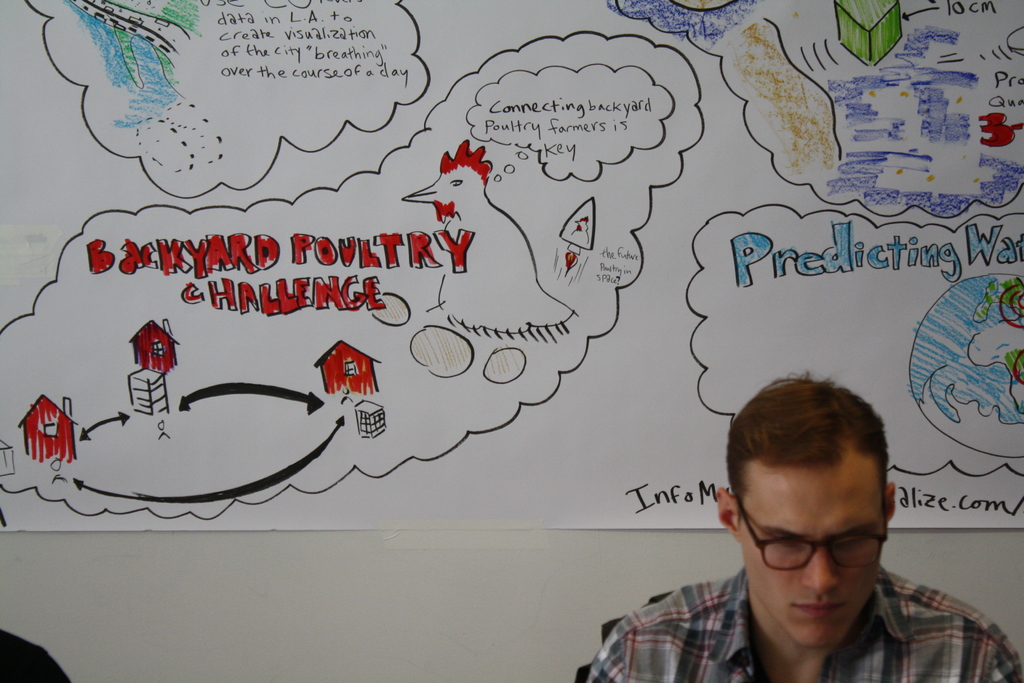 data in L.A. to
create visualization
of the city "breathing"
over the course of a day
10cm
Connecting backyard
Poultry farmers is
key
BACKYARD POULTRY
CHALLENGE
the future
Poultry in
space?
Predicting
alize.com/